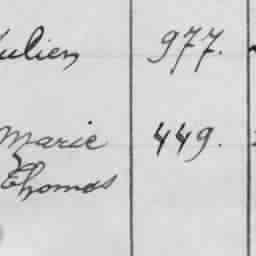 ulien 977.
Marie 449.
Thomas